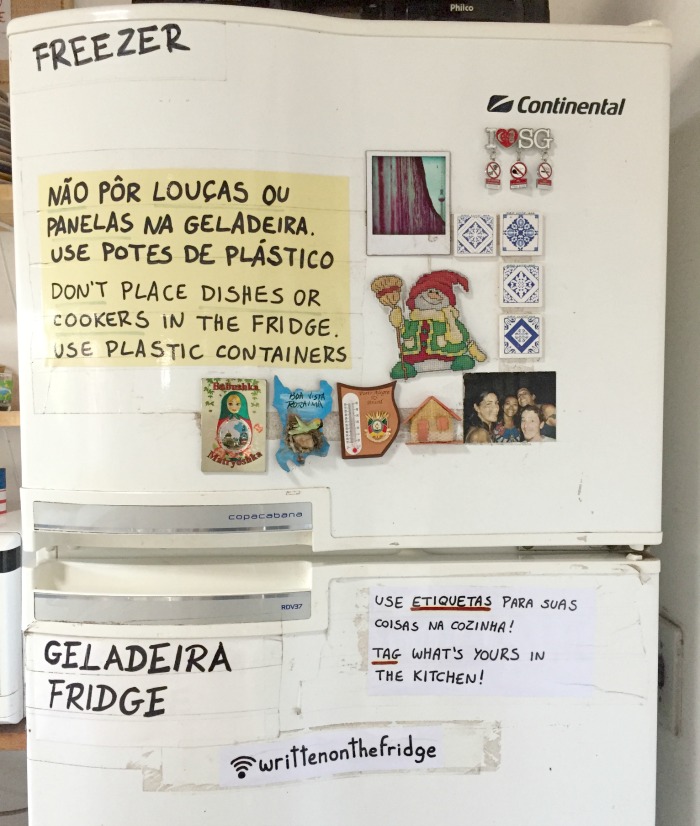 Philco
FREEZER
Continental
I SG
NÃO PÔR LOUÇAS OU
PANELAS NA GELADEIRA.
USE POTES DE PLÁSTICO
DON'T PLACE DISHES OR
COOKERS IN THE FRIDGE.
USE PLASTIC CONTAINERS
Babushka
Matryoshka
BOA VISTA
RORAIMA
copacabana
RDV37
USE ETIQUETAS PARA SUAS
COISAS NA COZINHA!
TAG WHAT'S YOURS IN
THE KITCHEN!
GELADEIRA
FRIDGE
writtenonthefridge